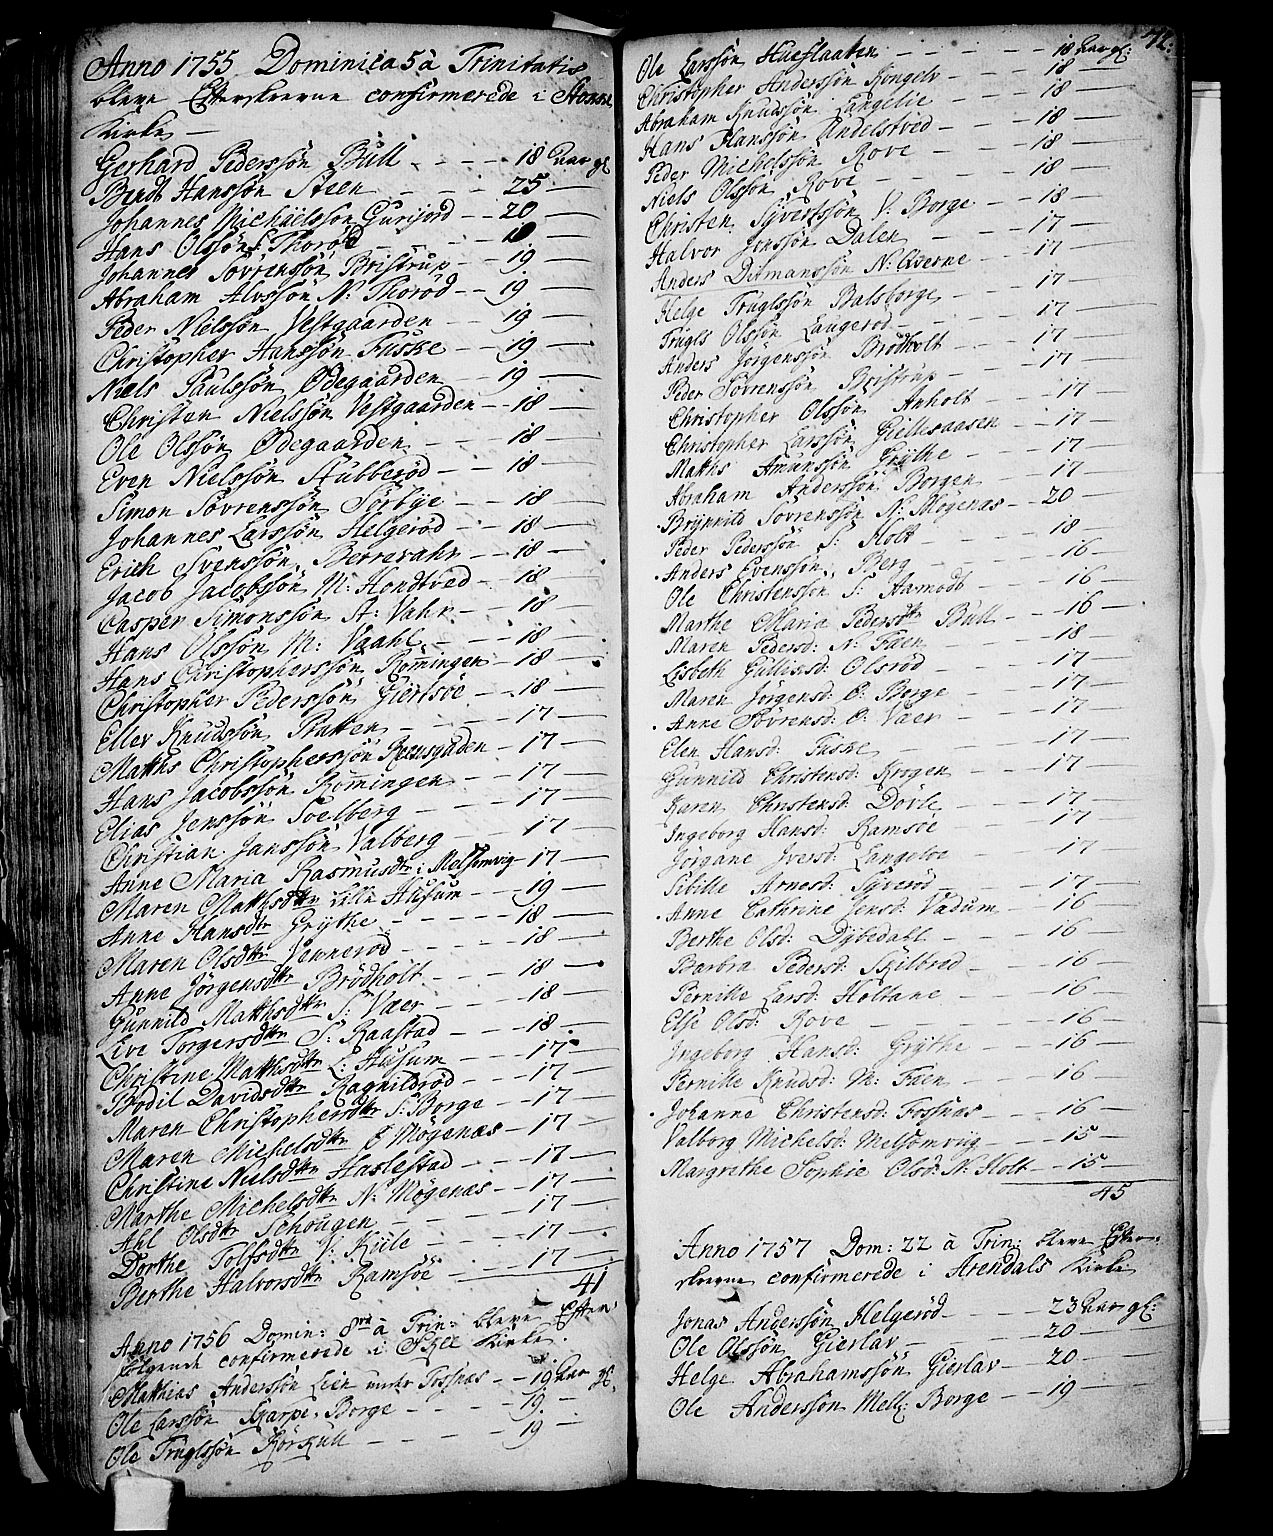 Anno 1755 Dominica 5 à Trinitatis
bleve Efterskrevne confirmerede i
Kirke
Gerhard Pederssön Bull - - - 18 Aar gl
Bendt Hanssön Steen - - - 25 -
Johannes Michaëlssön Gurijord - - 20 -
Hans Olssön Thoröd - - -
Johannes Sövrenssön Bristrup - - 19 -
Abraham Alvssön N: Thoröd - - 19 -
Peder Nielssön Vestgaarden - - 19 -
Christopher Hanssön Fuske - - 19 -
Niels Paulssön Ödegaarden - - 19 -
Christen Nielssön Vestgaarden - - 18 -
Ole Olssön Ödegaarden - - - 18 -
Even Nielssön Stubberöd - - 18 -
Simon Sövrenssön Sörbye - - - 18 -
Johannes Larssön Helgeröd - - 18 -
Erich Svenssön Berrevahr - - 18 -
Jacob Jacobssön M: Hondtved - 18 -
Casper Simonssön A: Vahr - - 18 -
Hans Olssön M: Vaahl - - - 18 -
Hans Christopherssön Römingen - 18 -
Christopher Pederssön Giertsöe - - 18 -
Eller Knudssön Pratten - - - 17 -
Matths Christopherssön - 17 -
Hans Jacobssön Römingen - - 17 -
Elias Jenssön Soelberg - - - 17 -
Christian Janssön Valberg - - 17 -
Anne Maria Rasmusdtr i Melsomvig - 17 -
Maren Matthsdtr Lille Husum - - 19 -
Anne Hansdtr Grythe - - - 18 -
Maren Olsdtr Venneröd - - - 18 -
Anne Jörgensdtr Brödholt - - - 18 -
Gunnild Matthsdtr S: Vaer - - - 18 -
Live Torgersdtr S: Raastad - - - 18 -
Christine Matthsdtr L: Husum - - 17 -
Bodil Davidsdtr Ragnildröd - - 17 -
Maren Christophersdtr S: Borge - - 17 -
Maren Michelsdtr Ö Mögenæs - 17 -
Christine Nielsdtr Haslestad - - 17 -
Marthe Michelsdtr N: Mögenæs - - 17 -
Ahl Olsdtr Schougen - - - 17 -
Dorthe Tolfsdtr V: Kiile - - - 17 -
Berthe Halvorsdtr Ramsöe - - - 17 -
41
Anno 1756 Domin: 8va à Trin: bleve Efter-
fölgende confirmerede i Skee Kirke.
Matthias Anderssön Leen under Fossnæs - - 19 Aar gl.
Ole Larssön Skarpe-Borge - - - 19. -
Ole Truglssön Körkull - - - 19 -
42.
Ole Larssön Hueslaaten - - - 18 Aar gl:
Christopher Anderssön Kongelv - - - 18 -
Abraham Knudssön Langelie - - - 18 -
Hans Hanssön Undelstved - - - 18 -
Peder Michelssön Rove - - - 18 -
Niels Olssön Rove - - - 18 -
Christen Syvertssön V: Borge - - 18 -
Halvor Jonssön Dalen - - - 17 -
Anders Ditmanssön N: Qverne - - - 17 -
Helge Truglssön Balsborge - - - 17 -
Trugls Olssön Laugeröd - - - 17 -
Anders Jörgenssön Brödholt - - - 17 -
Peder Sövrenssön Bristrup - - - 17 -
Christopher Olssön Anholt - - - 17 -
Christopher Larssön Gillesaasen - - 17 -
Matths Amunssön Grythe - - - 17 -
Abraham Anderssön Borgen - - - 17 -
Brynnild Sövrenssön N: Mögenæs - 20 -
Peder Pederssön S: Holt - - - 18 -
Anders Evenssön Berg - - - 16 -
Ole Christenssön S: Aamodt - - - 16 -
Marthe Maria Pedersdtr Bull - - - 16 -
Maren Pedersd: N: Faen - - - 18 -
Lisbeth Gulliksd: Olsröd - - - 17 -
Maren Jörgensd: Ö: Borge - - - 17 -
Anne Sövrensd: Ö: Væer - - - 17 -
Elen Hansd: Fuske - - - 17 -
Gunnild Christensd: Krogen - - - 17 -
Karen Christensd: Dövle - - - 17 -
Ingeborg Hansd: Ramsöe - - - 17 -
Jörgane Iversd: Langeloe - - - 17 -
Sibille Arnesd: Syveröd - - - 17 -
Anne Cathrine Jensd: Vadum - - 16 -
Berthe Olsd: Dybedahl - - - 16 -
Barbra Pedersd: Skilbred - - - 16 -
Pernille Larsd: Holtane - - - 16 -
Else Olsd: Rove - - - 16 -
Ingeborg Hansd: Grythe - - - 16 -
Pernille Knudsd: M: Faen - - - 16 -
Johanne Christensd: Fossnæs - - - 16 -
Valborg Michelsd: Melsomviig - - - 15 -
Margrethe Sophie Olsd: N: Holt - - 15 -
45
Anno 1757 Dom: 22 à Trin: bleve Efter-
skrevne confirmerede i Arendals Kirke
Jonas Anderssön Helgeröd - - - 23 Aar gl:
Ole Olssön Gierlav - - - 20 -
Helge Abrahamssön Gierlav - - 20 -
Ole Anderssön Mell: Borge - - - 19 -